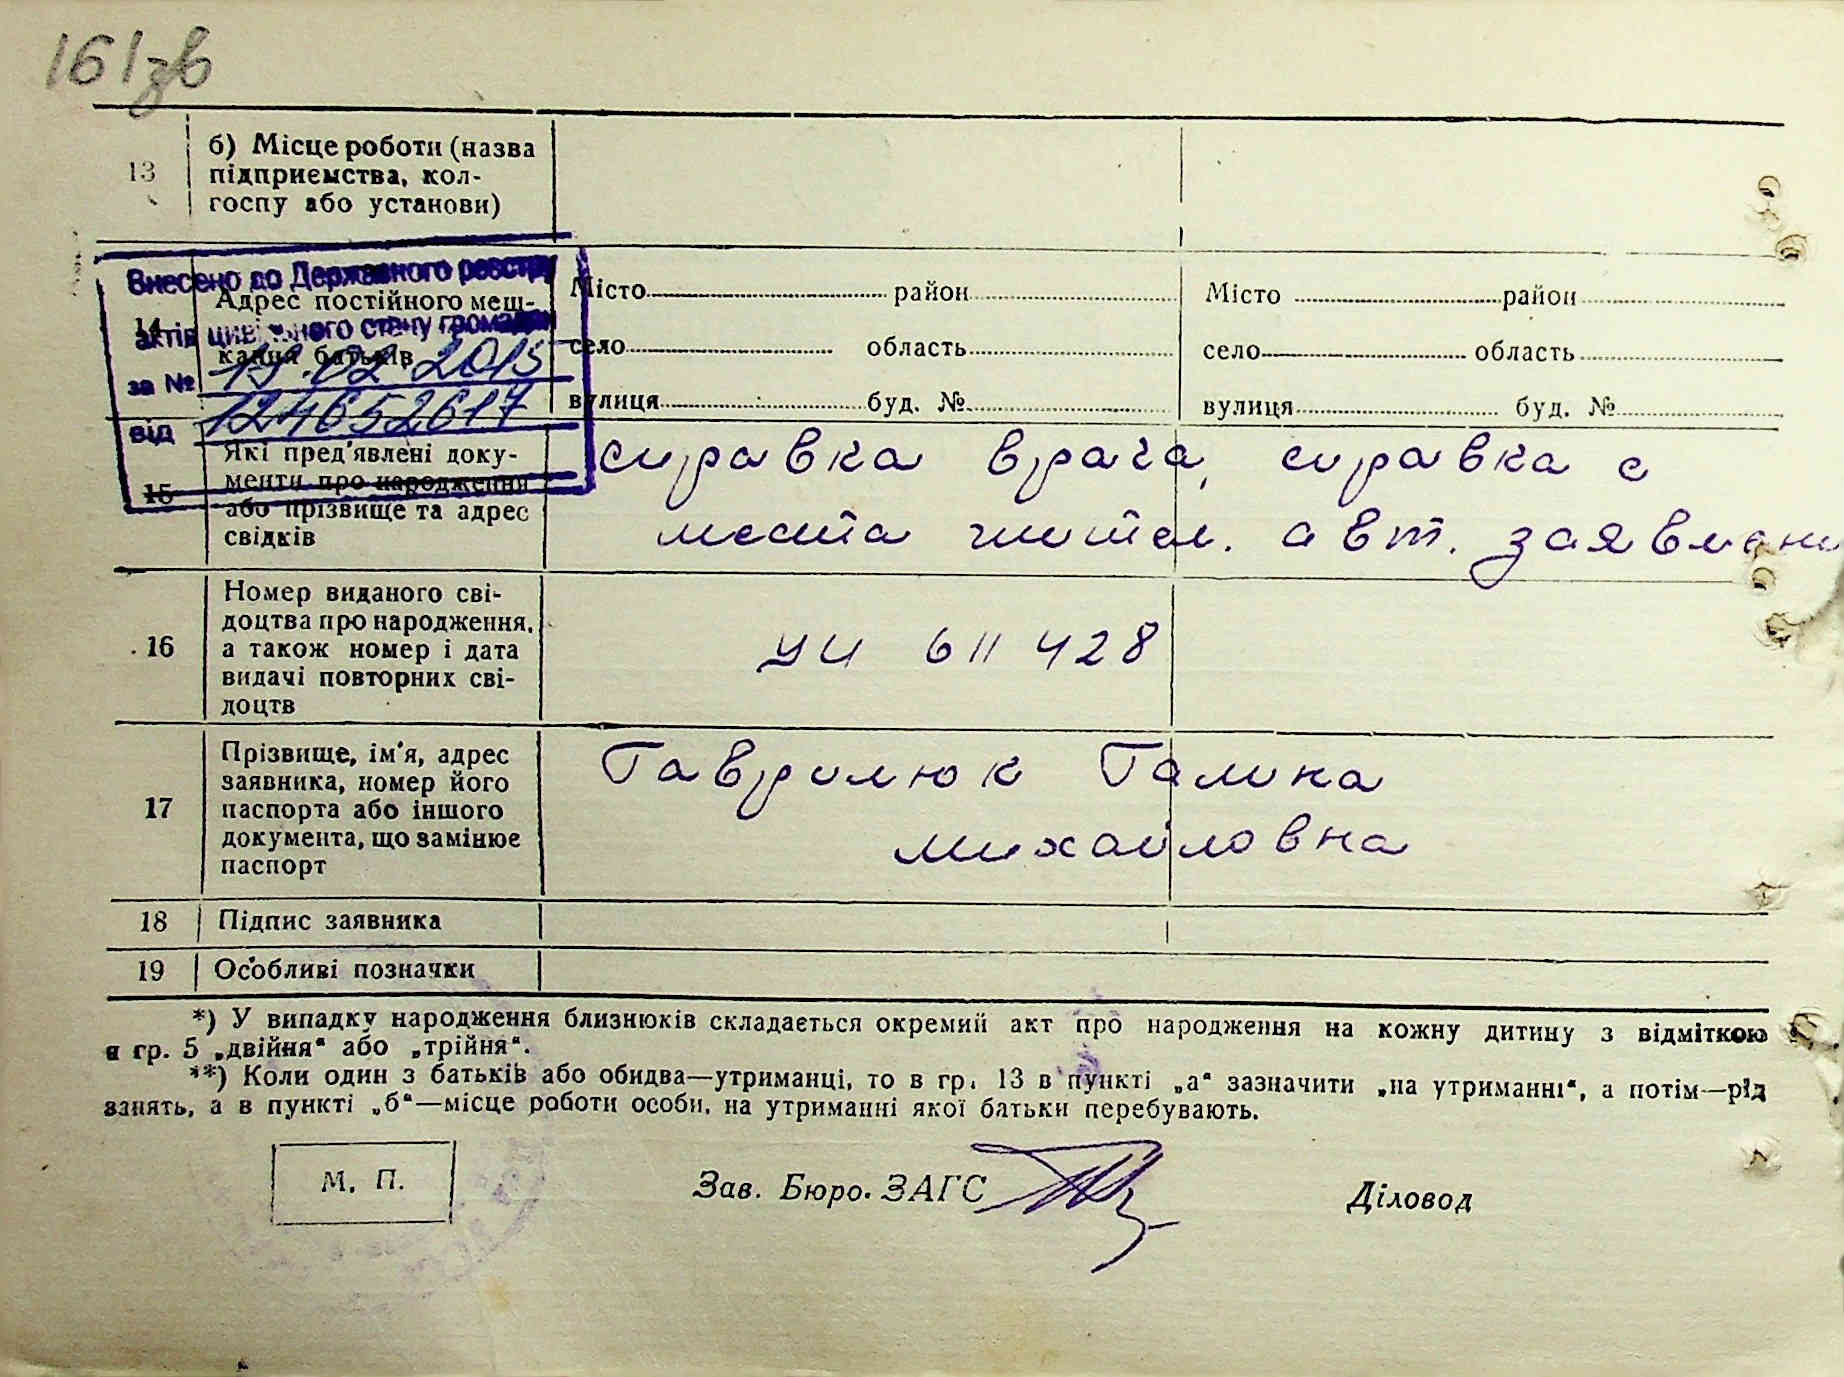 161зв
13
б) Місце роботи (назва
підприємства, кол-
госпу або установи)
Внесено до Державного реєстру
актів цивільного стану громадян
за № 19.02.2015
від 124652617
14
Адрес постійного меш-
кання батьків
Місто район
село область
вулиця буд. №
Місто район
село область
вулиця буд. №
15
Які пред'явлені доку-
менти про народження
або прізвище та адрес
свідків
справка врача, справка с
места жител. авт.
16
Номер виданого сві-
доцтва про народження,
а також номер і дата
видачі повторних сві-
доцтв
УИ 611428
17
Прізвище, ім'я, адрес
заявника, номер його
паспорта або іншого
документа, що замінює
паспорт
Гаврилюк Галина
Михайловна
18 Підпис заявника
19 Особливі позначки
*) У випадку народження близнюків складається окремий акт про народження на кожну дитину з відміткою
в гр. 5 „двійня“ або „трійня“.
**) Коли один з батьків або обидва—утриманці, то в гр. 13 в пункті „а“ зазначити „на утриманні“, а потім—рід
занять, а в пункті „б“—місце роботи особи, на утриманні якої батьки перебувають.
М. П.
Зав. Бюро. ЗАГС
Діловод